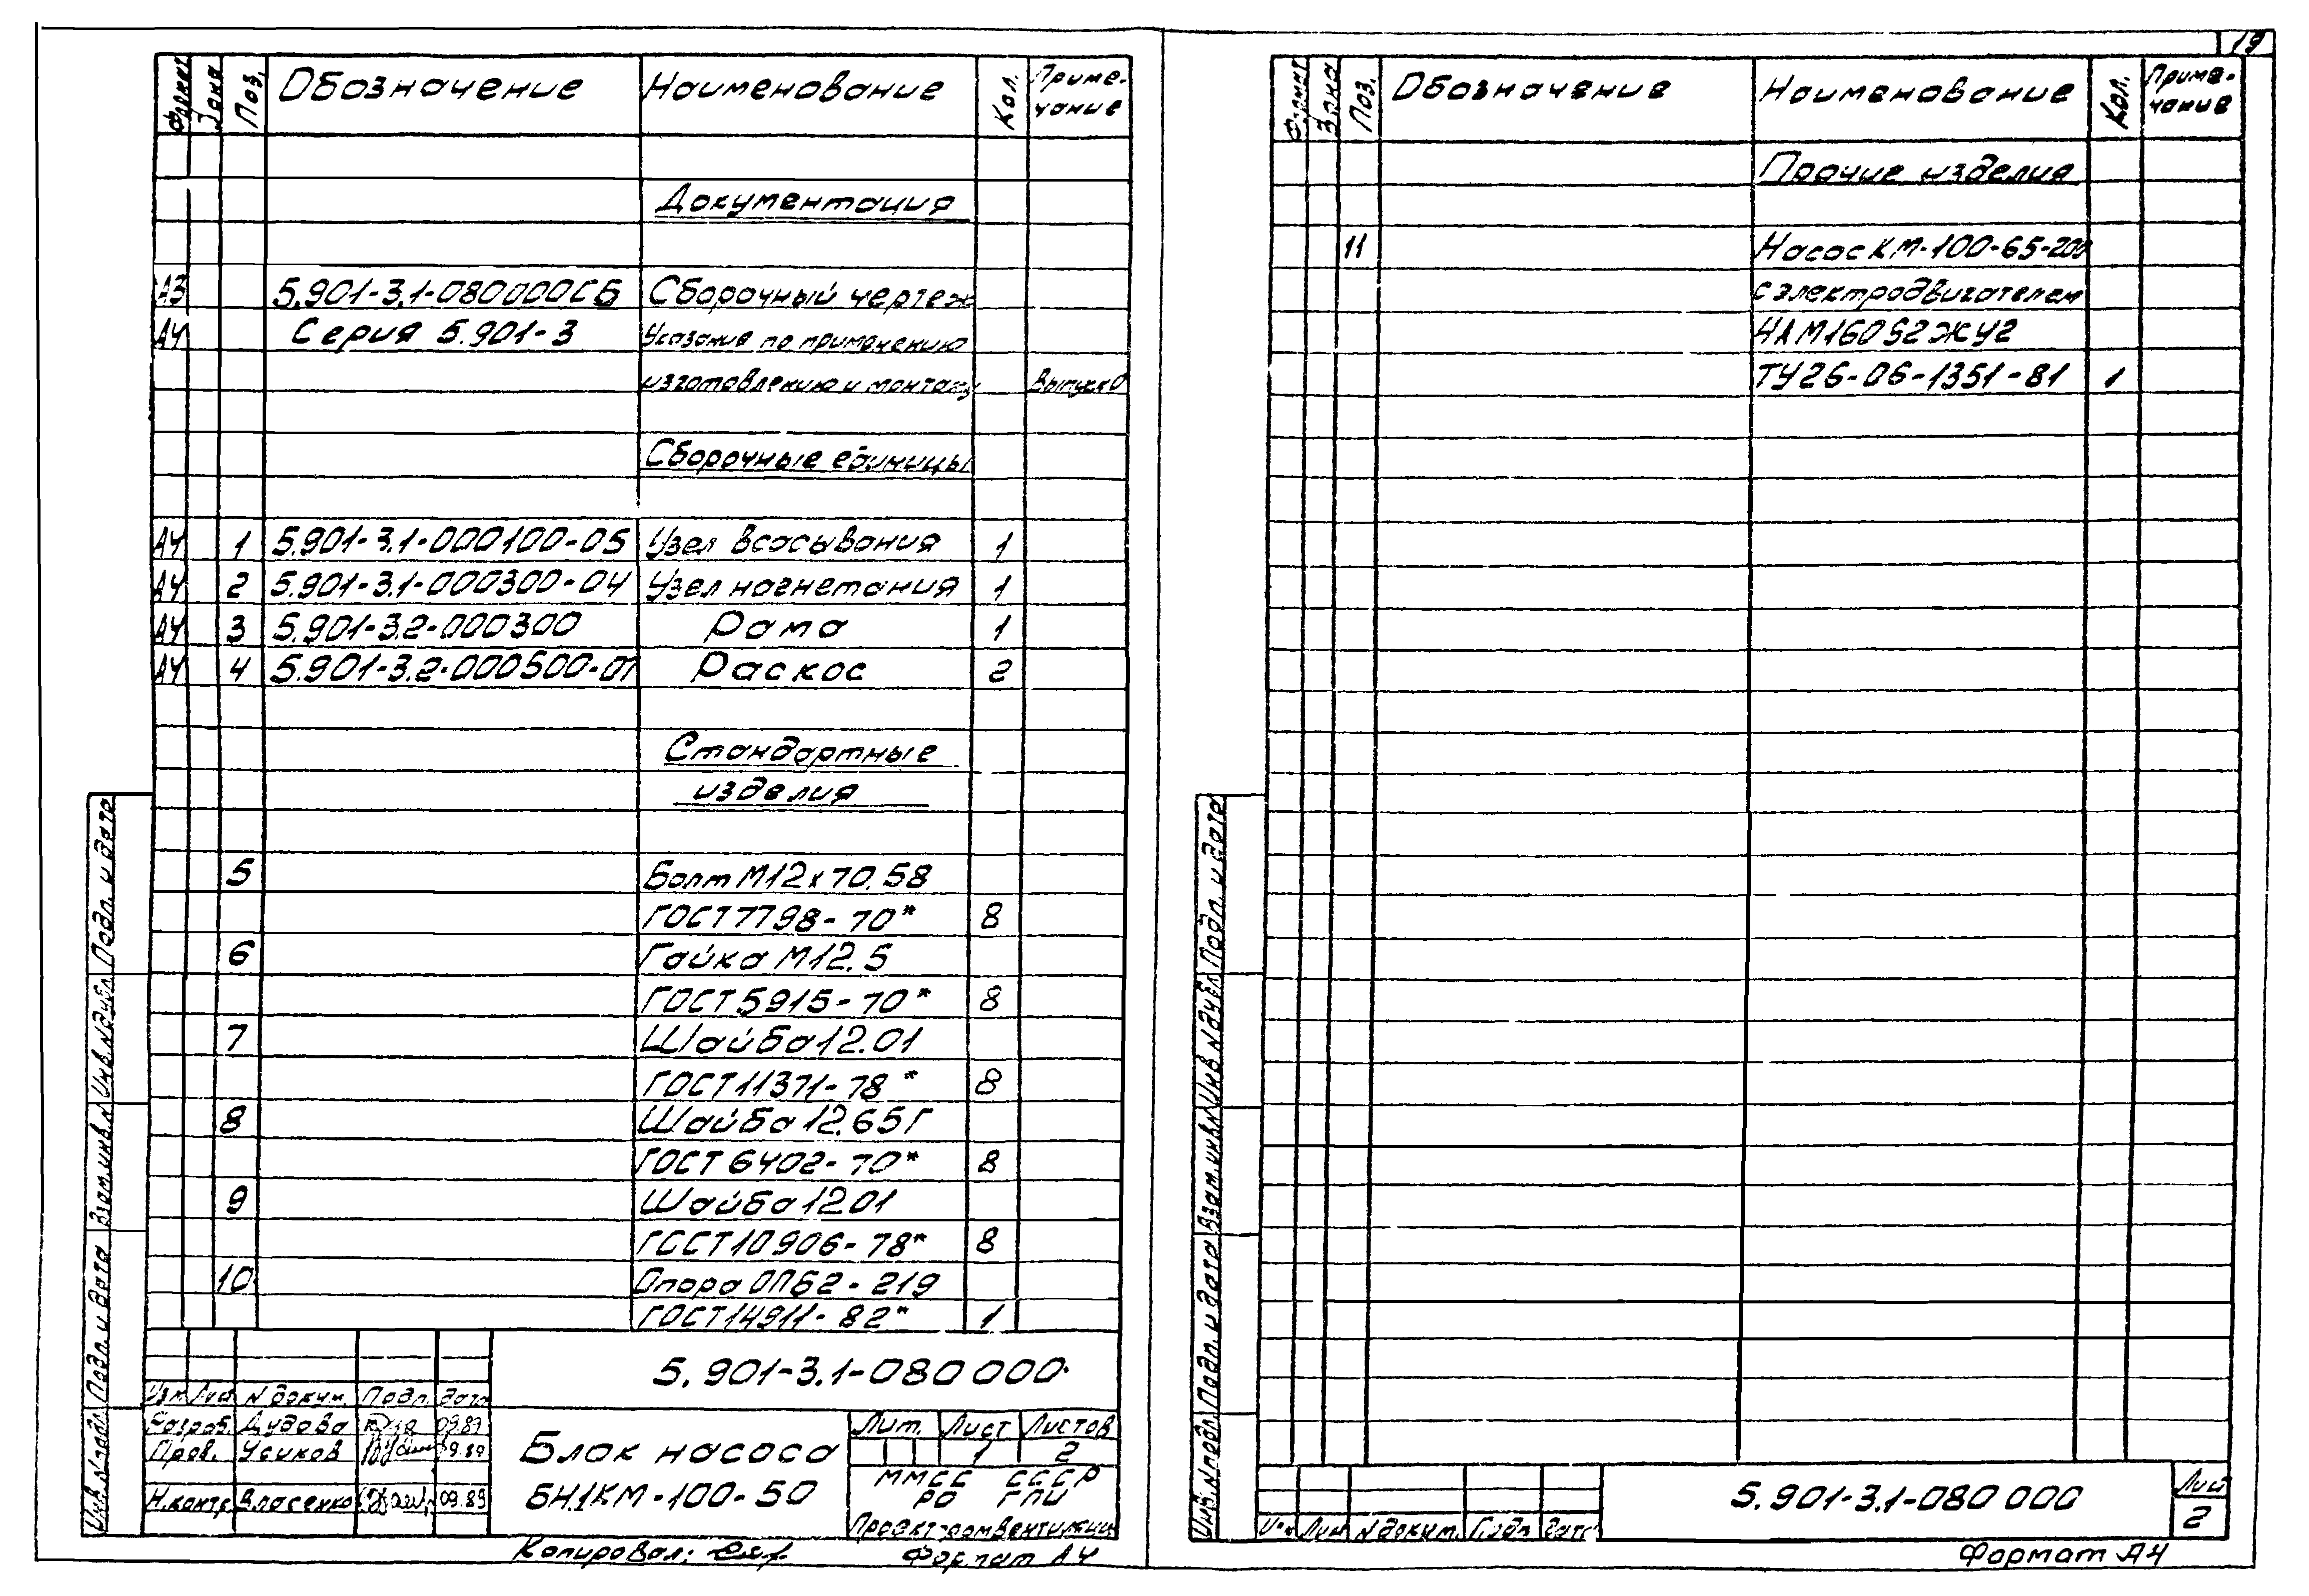 19
Формат Зона Поз. Обозначение Наименование Кол. Примечание
Документация
А3 5.901-3.1-080000СБ Сборочный чертеж
А4 Серия 5.901-3 Указание по применению
изготовлению и монтажу Выпуск 0
Сборочные единицы
А4 1 5.901-3.1-000100-05 Узел всасывания 1
А4 2 5.901-3.1-000300-04 Узел нагнетания 1
А4 3 5.901-3.2-000300 Рама 1
А4 4 5.901-3.2-000500-01 Раскос 2
Стандартные
изделия
5 Болт М12х70.58
ГОСТ 7798-70* 8
6 Гайка М12.5
ГОСТ 5915-70* 8
7 Шайба 12.01
ГОСТ 11371-78* 8
8 Шайба 12.65Г
ГОСТ 6402-70* 8
9 Шайба 1201
ГОСТ 10906-78* 8
10 Опора ОПБ2-219
ГОСТ 14911-82* 1
5.901-3.1-080 000
Изм. Лист N докум. Подп. дата
Разраб. Дудова 09.89
Пров. Усиков 09.89
Н.контр. Власенко 09.89
Блок насоса
БН.1КМ-100-50
Лит. Лист Листов
1 2
ММСС СССР
РО ГПИ
Проектпромвентиляция
Копировал: Формат А4
Инв. N подл. Подп. и дата Взам. инв. N Инв. N дубл. Подп. и дата
Формат Зона Поз. Обозначение Наименование Кол. Примечание
Прочие изделия
11 Насос КМ-100-65-200
с электродвигателем
4АМ160S2ЖУ2
ТУ26-06-1351-81 1
Изм Лист N докум. Подп. дата
5.901-3.1-080 000
Лист
2
Формат А4
Инв. N подл. Подп. и дата Взам. инв. N Инв. N дубл. Подп. и дата